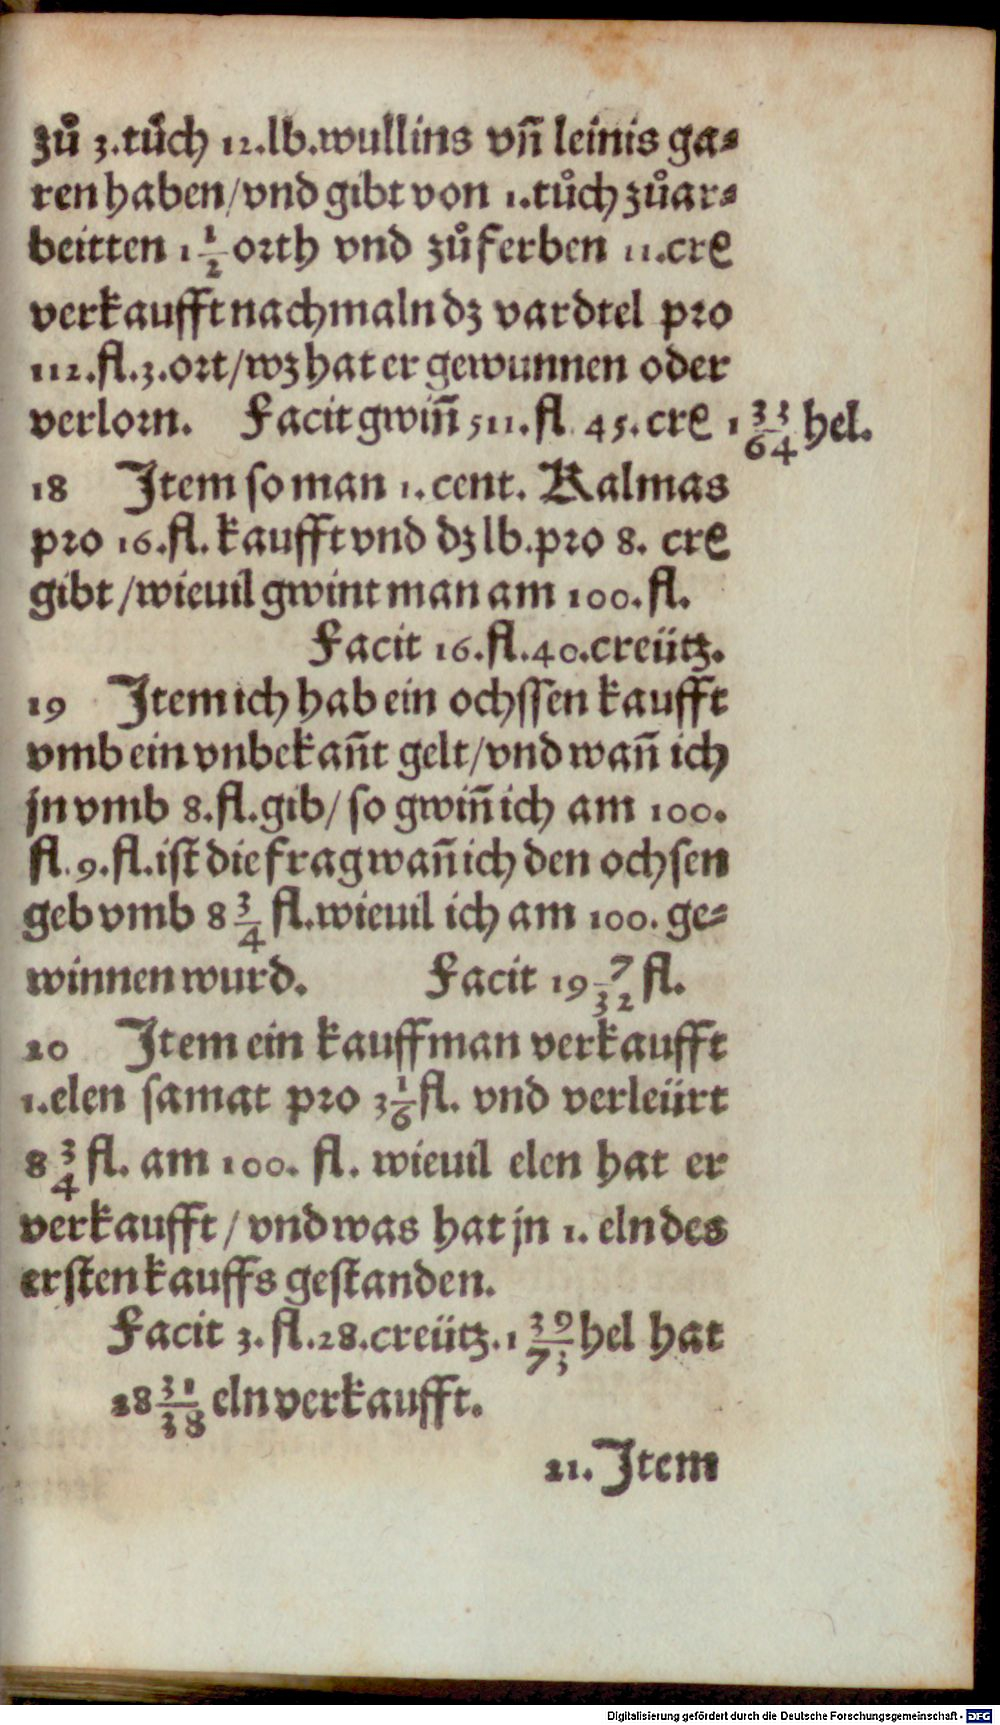 zů 3.tůch 12.lb.wullins vñ leinis ga⸗
ren haben/vnd gibt von 1.tůch zůar⸗
beitten 1 1/2 orth vnd zůferben 11.crẽ
verkaufft nachmaln dz vardtel pro
112.fl.3.ort/wz hat er gewunnen oder
verlorn. Facit gwiñ 511.fl 45.crẽ 1 33/64 hel.
18 Item so man 1.cent. Kalmas
pro 16.fl.kaufft vnd dz lb.pro 8. crẽ
gibt/wieuil gwint man am 100.fl.
Facit 16.fl.40.creütz.
19 Item ich hab ein ochssen kaufft
vmb ein vnbekañt gelt/vnd wañ ich
jn vmb 8.fl.gib/so gwiñ ich am 100.
fl.9.fl.ist die frag wañ ich den ochsen
geb vmb 8 3/4 fl.wieuil ich am 100.ge⸗
winnen wurd. Facit 19 7/32 fl.
20 Item ein kauffman verkaufft
1.elen samat pro 3 1/6 fl. vnd verleürt
8 3/4 fl. am 100. fl. wieuil elen hat er
verkaufft/vnd was hat jn 1. eln des
ersten kauffs gestanden.
Facit 3.fl.28.creütz.1 39/73 hel hat
28 31/38 eln verkaufft.
21. Item
Digitalisierung gefördert durch die Deutsche Forschungsgemeinschaft - DFG